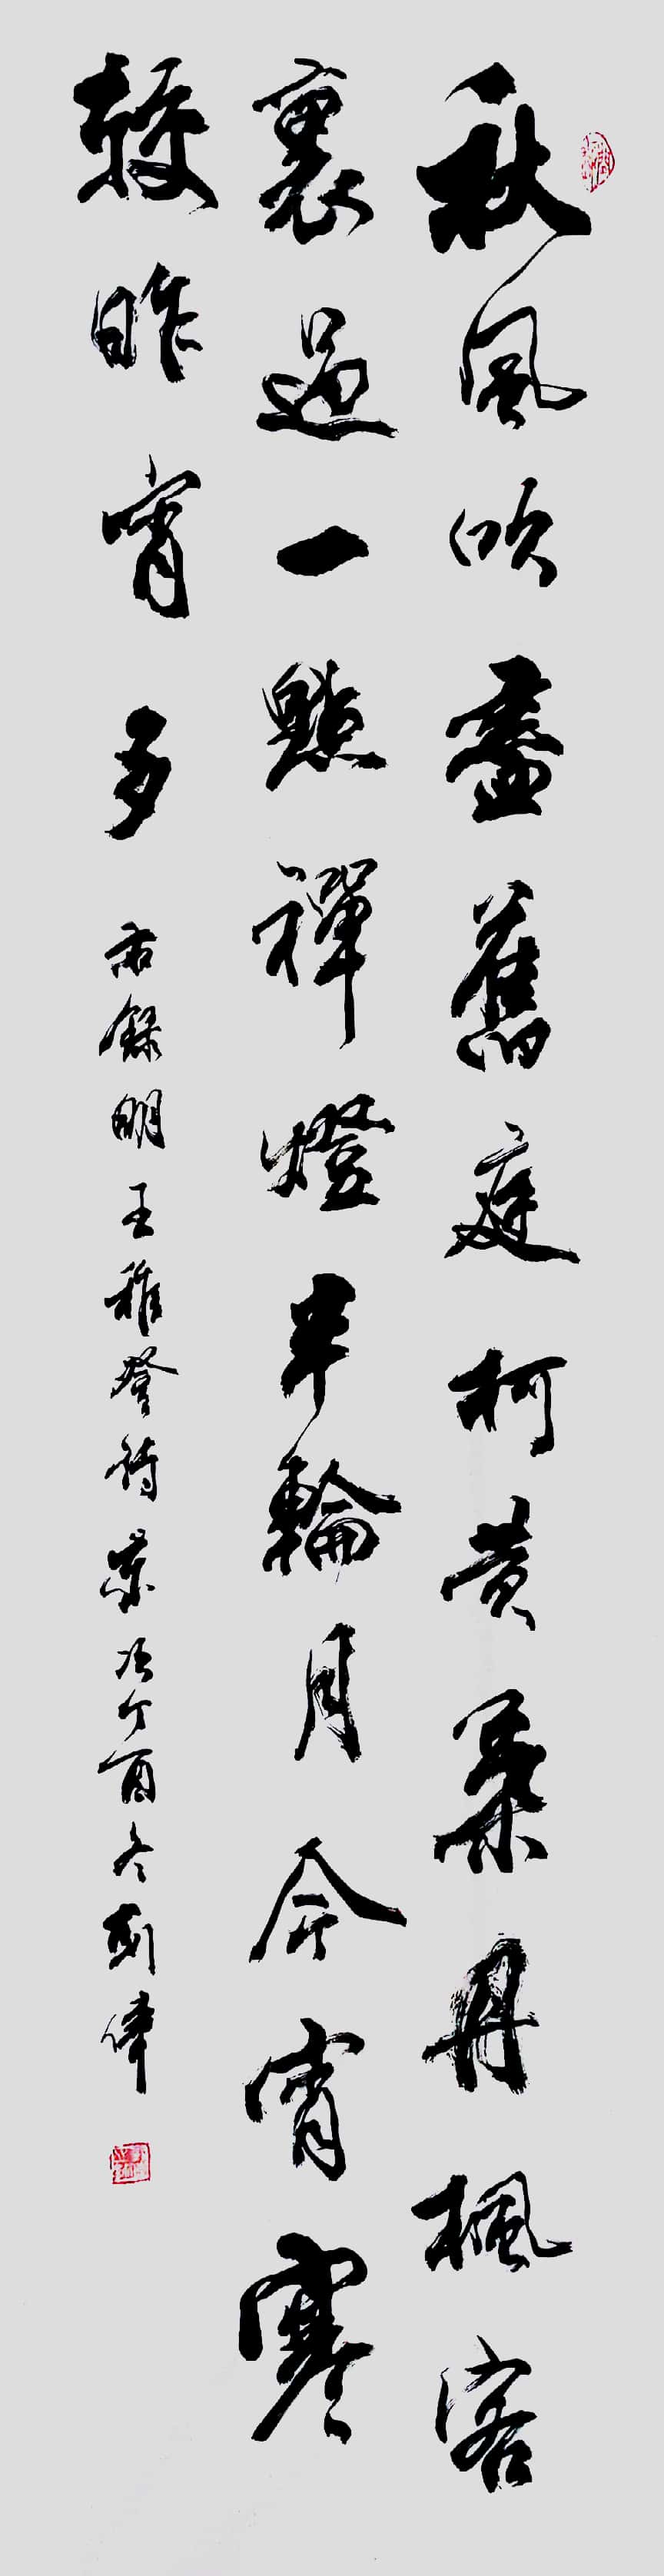 秋風吹盡舊庭柯黄葉丹楓客
裏過一點禪燈半輪月今宵寒
較昨宵多 右錄明王稚登詩歲次丁酉冬劉偉